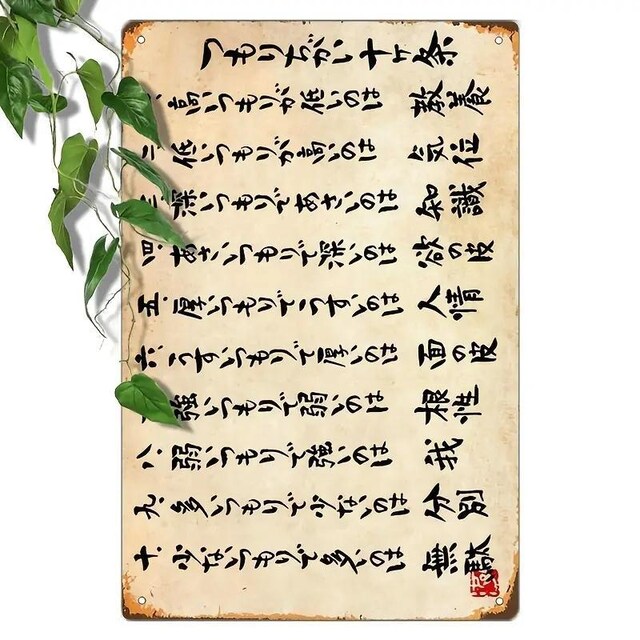 つもりちがい十ヶ条
一、高いつもりが低いのは 教養
二、低いつもりが高いのは 気位
三、深いつもりであさいのは 知識
四、あさいつもりで深いのは 欲の皮
五、厚いつもりでうすいのは 人情
六、うすいつもりで厚いのは 面の皮
強いつもりで弱いのは 根性
八、弱いつもりで強いのは 我
九、多いつもりで少ないのは 分別
十、少ないつもりで多いのは 無駄